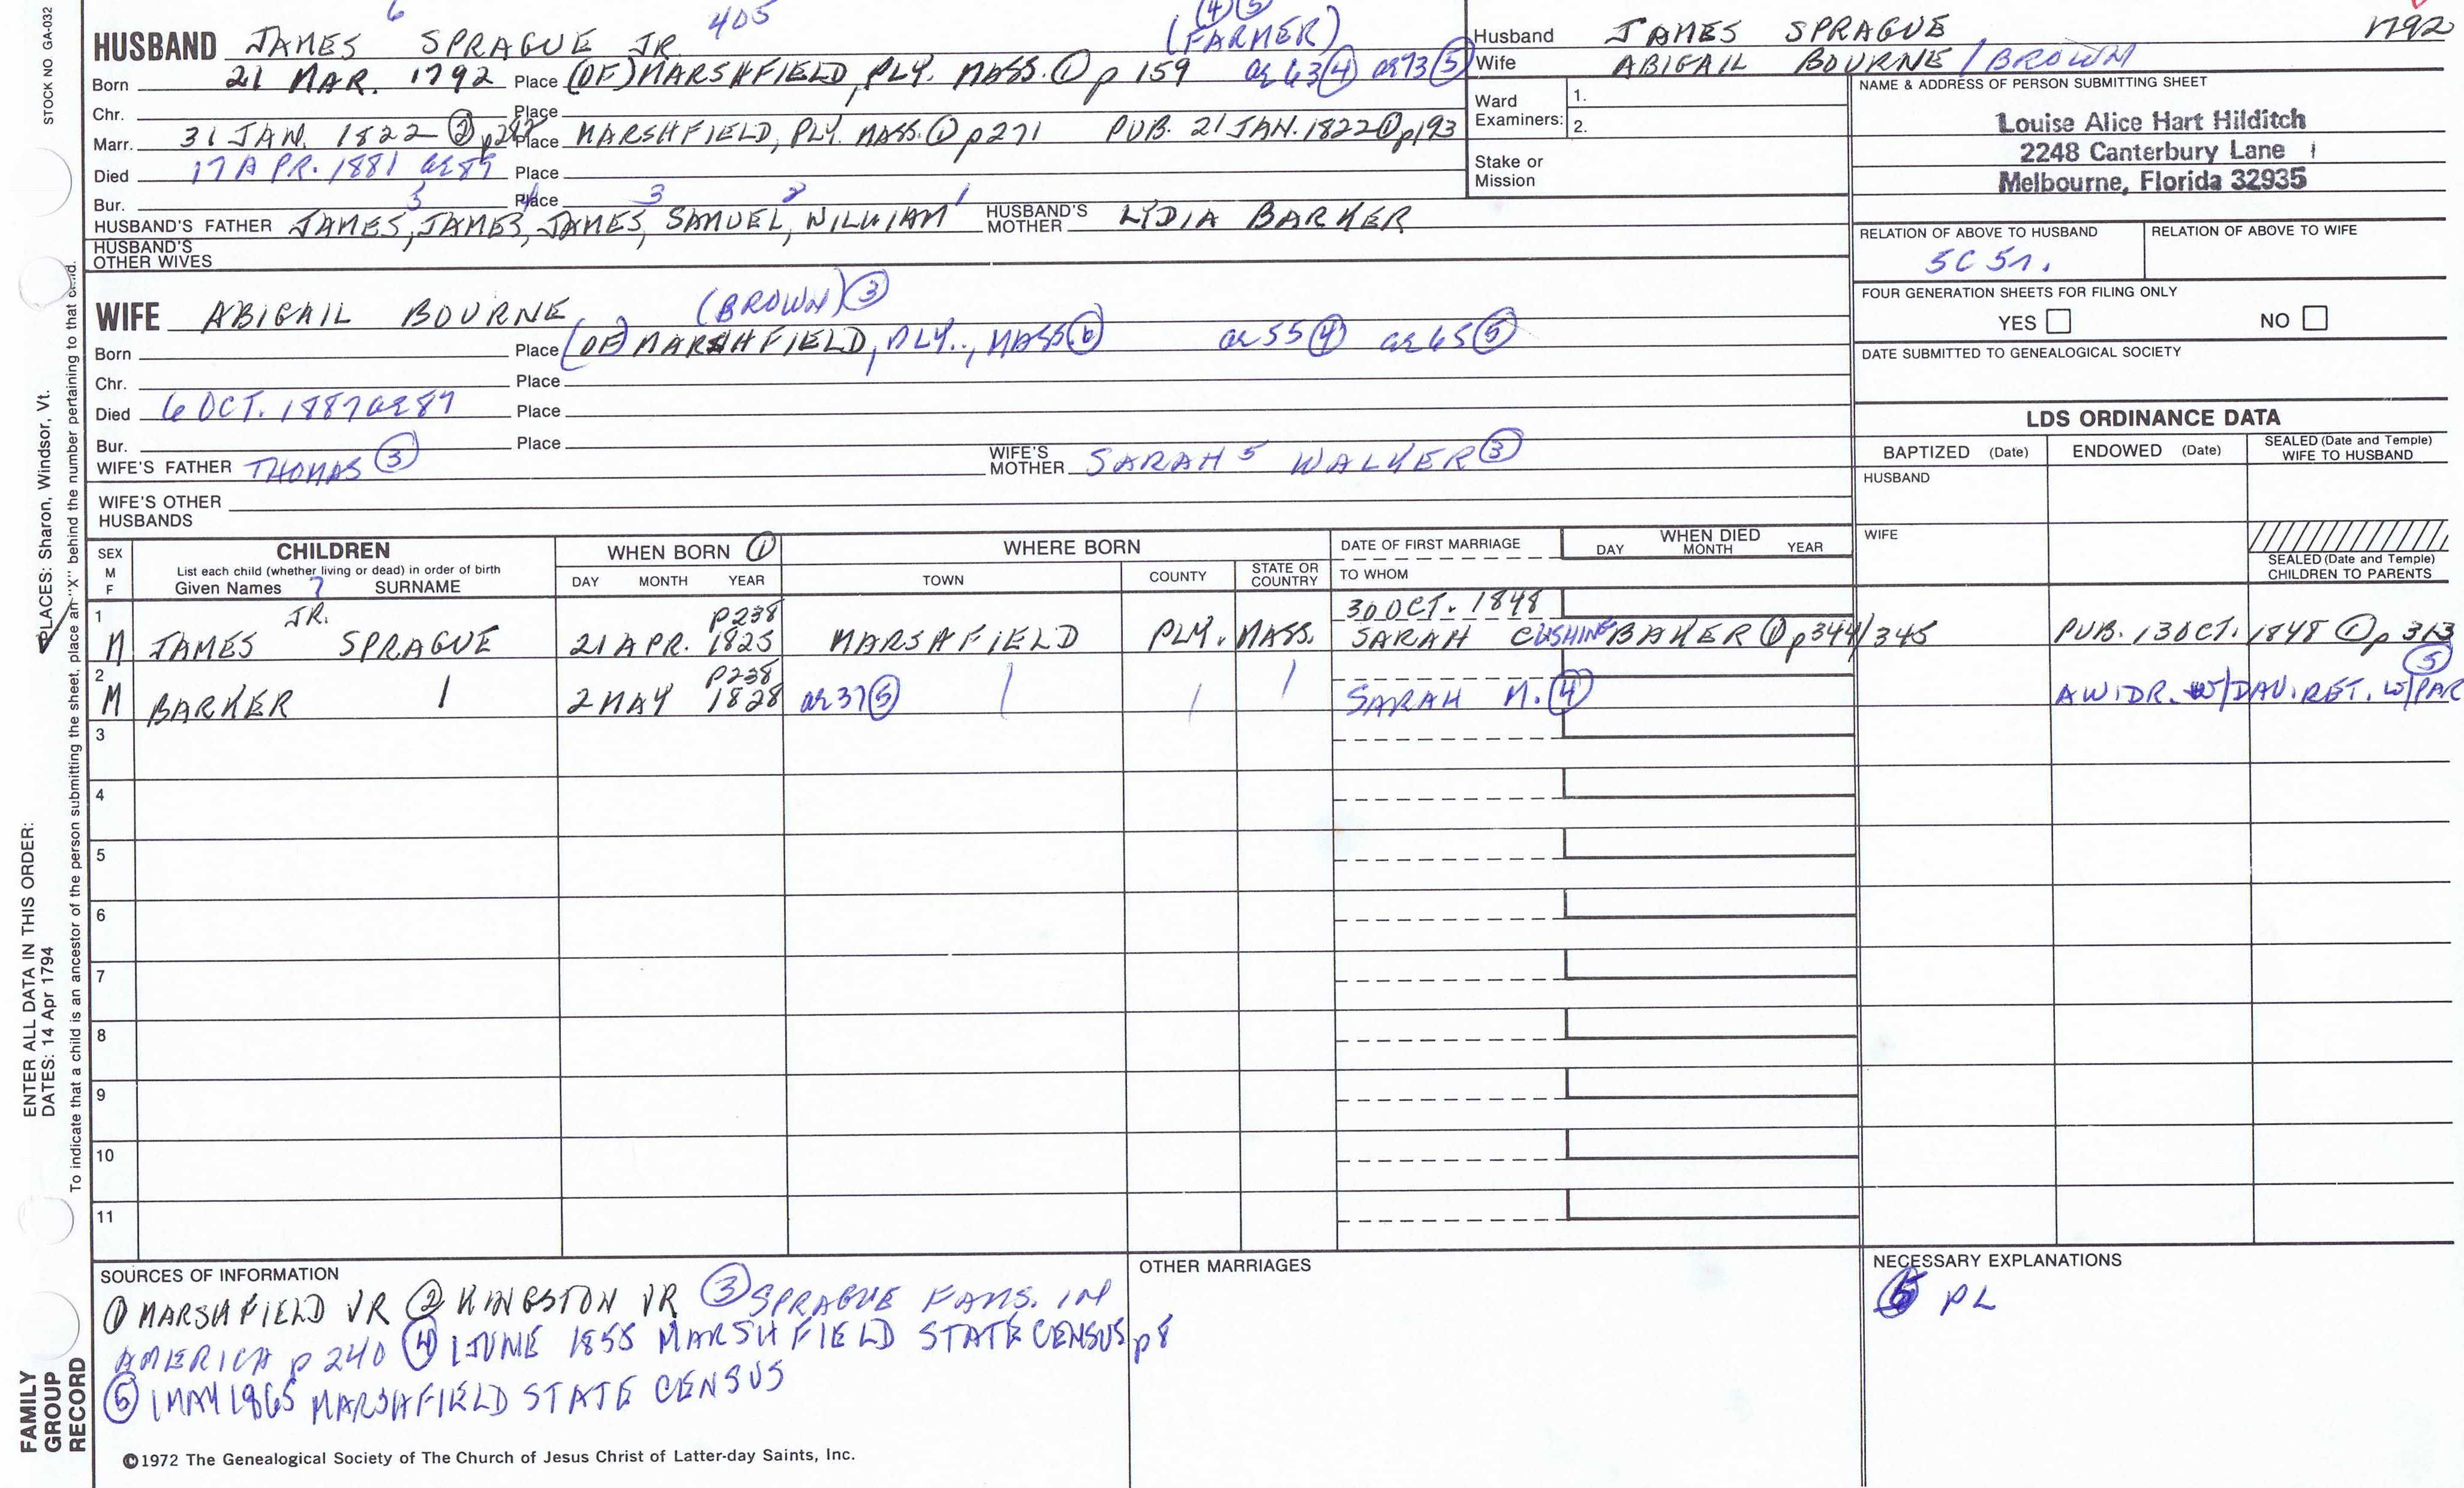 6 405 (4)(5)
HUSBAND JAMES SPRAGUE JR. (FARMER)
Born 21 MAR. 1792 Place (OF) MARSHFIELD, PLY. MASS. ① p 159 ae 63 ④ ae 73 ⑤
Chr. Place
Marr. 31 JAN. 1822 ② Place MARSHFIELD, PLY. MASS. ① p 271 PUB. 21 JAN. 1822 ① p 193
Died 17 APR. 1881 ae 89 Place
Bur. Place
5 4 3 2 1
HUSBAND'S FATHER JAMES, JAMES, JAMES, SAMUEL, WILLIAM HUSBAND'S MOTHER LYDIA BARKER
HUSBAND'S OTHER WIVES
Husband JAMES SPRAGUE 1792
Wife ABIGAIL BOURNE / BROWN
Ward Examiners: 1.
2.
Stake or Mission
NAME & ADDRESS OF PERSON SUBMITTING SHEET
Louise Alice Hart Hilditch
2248 Canterbury Lane
Melbourne, Florida 32935
RELATION OF ABOVE TO HUSBAND RELATION OF ABOVE TO WIFE
5C 5r.
FOUR GENERATION SHEETS FOR FILING ONLY
YES NO
DATE SUBMITTED TO GENEALOGICAL SOCIETY
WIFE ABIGAIL BOURNE (BROWN) ③
Born Place (OF) MARSHFIELD, PLY., MASS ae 55 ④ ae 65 ⑤
Chr. Place
Died 6 OCT. 1887 ae 87 Place
Bur. Place
WIFE'S FATHER THOMAS ③ WIFE'S MOTHER SARAH 5 WALKER ③
WIFE'S OTHER HUSBANDS
LDS ORDINANCE DATA
BAPTIZED (Date) ENDOWED (Date) SEALED (Date and Temple) WIFE TO HUSBAND
HUSBAND
WIFE
SEALED (Date and Temple) CHILDREN TO PARENTS
SEX M F
CHILDREN
List each child (whether living or dead) in order of birth
Given Names 7 SURNAME
WHEN BORN ①
DAY MONTH YEAR
WHERE BORN
TOWN COUNTY STATE OR COUNTRY
DATE OF FIRST MARRIAGE
TO WHOM
WHEN DIED
DAY MONTH YEAR
1 JR. p238 30 OCT. 1848
M JAMES SPRAGUE 21 APR. 1825 MARSHFIELD PLY. MASS. SARAH CUSHING BAKER ① p 344/345 PUB. 13 OCT. 1848 ① p 313
2 p238 ⑤
M BARKER 2 MAY 1828 ae 37 ⑤ SARAH M. ④ A WIDR. W/DAU. RET. W/PAR
3
4
5
6
7
8
9
10
11
SOURCES OF INFORMATION
① MARSHFIELD VR ② KINGSTON VR ③ SPRAGUE FAMS. IN
AMERICA p 240 ④ 1 JUNE 1855 MARSHFIELD STATE CENSUS p 8
⑤ 1 MAY 1865 MARSHFIELD STATE CENSUS
OTHER MARRIAGES
NECESSARY EXPLANATIONS
PL
©1972 The Genealogical Society of The Church of Jesus Christ of Latter-day Saints, Inc.
STOCK NO GA-032
ENTER ALL DATA IN THIS ORDER:
DATES: 14 Apr 1794
PLACES: Sharon, Windsor, Vt.
To indicate that a child is an ancestor of the person submitting the sheet, place an "X" behind the number pertaining to that child.
FAMILY
GROUP
RECORD